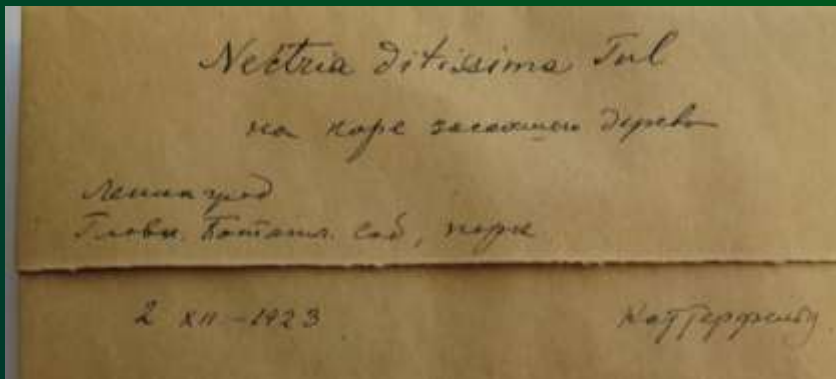 Nectria ditissima Tul
на коре засохшего дерева
Ленинград
Главн. Ботанич. Сад, парк
2 XII - 1923